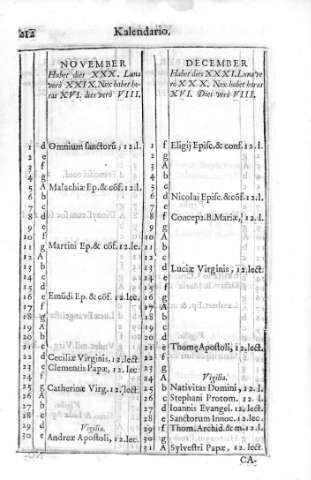 212 Kalendario.
NOVEMBER
Habet dies XXX. Luna
verò XXIX. Nox habet ho-
ras XVI. dies verò VIII.
1 d Omnium sanctorũ, 12.l.
2 e
3 f
4 g
5 A Malachiæ Ep. & cõf. 12.l.
6 b
7 c
8 d
9 e
10 f
11 g Martini Ep. & cõf. 12.lec.
12 A
13 b
14 c
15 d
16 e Emũdi Ep. & cõf. 12.lec.
17 f
18 g
19 A
20 b
21 c
22 d Ceciliæ Virginis. 12.lect.
23 e Clementis Papæ, 12.lec.
24 f
25 g Catherinæ Virg. 12.lect.
26 A
27 b
28 c
29 d Vigilia.
30 e Andreæ Apostoli, 12.lec.
DECEMBER
Habet dies XXXI. Luna ve
rò XXX. Nox habet horas
XVI. Dies verò VIII.
1 f Eligij Episc. & conf. 12.l.
2 g
3 A
4 b
5 c
6 d Nicolai Epis. & cõf. 12.l.
7 e
8 f Concep. B. Mariæ, 12.l.
9 g
10 A
11 b
12 c
13 d Luciæ Virginis, 12.lect.
14 e
15 f
16 g
17 A
18 b
19 c
20 d Vigilia.
21 e Thomę Apostoli, 12.lect.
22 f
23 g
24 A Vigilia.
25 b Nativitas Domini, 12.l.
26 c Stephani Protom. 12.l.
27 d Ioannis Evangel. 12.lect.
28 e Sanctorum Innoc. 12.lec.
29 f Thom. Archid. & m. 12.l.
30 g
31 A Sylvestri Papæ, 12.lect.
CA-